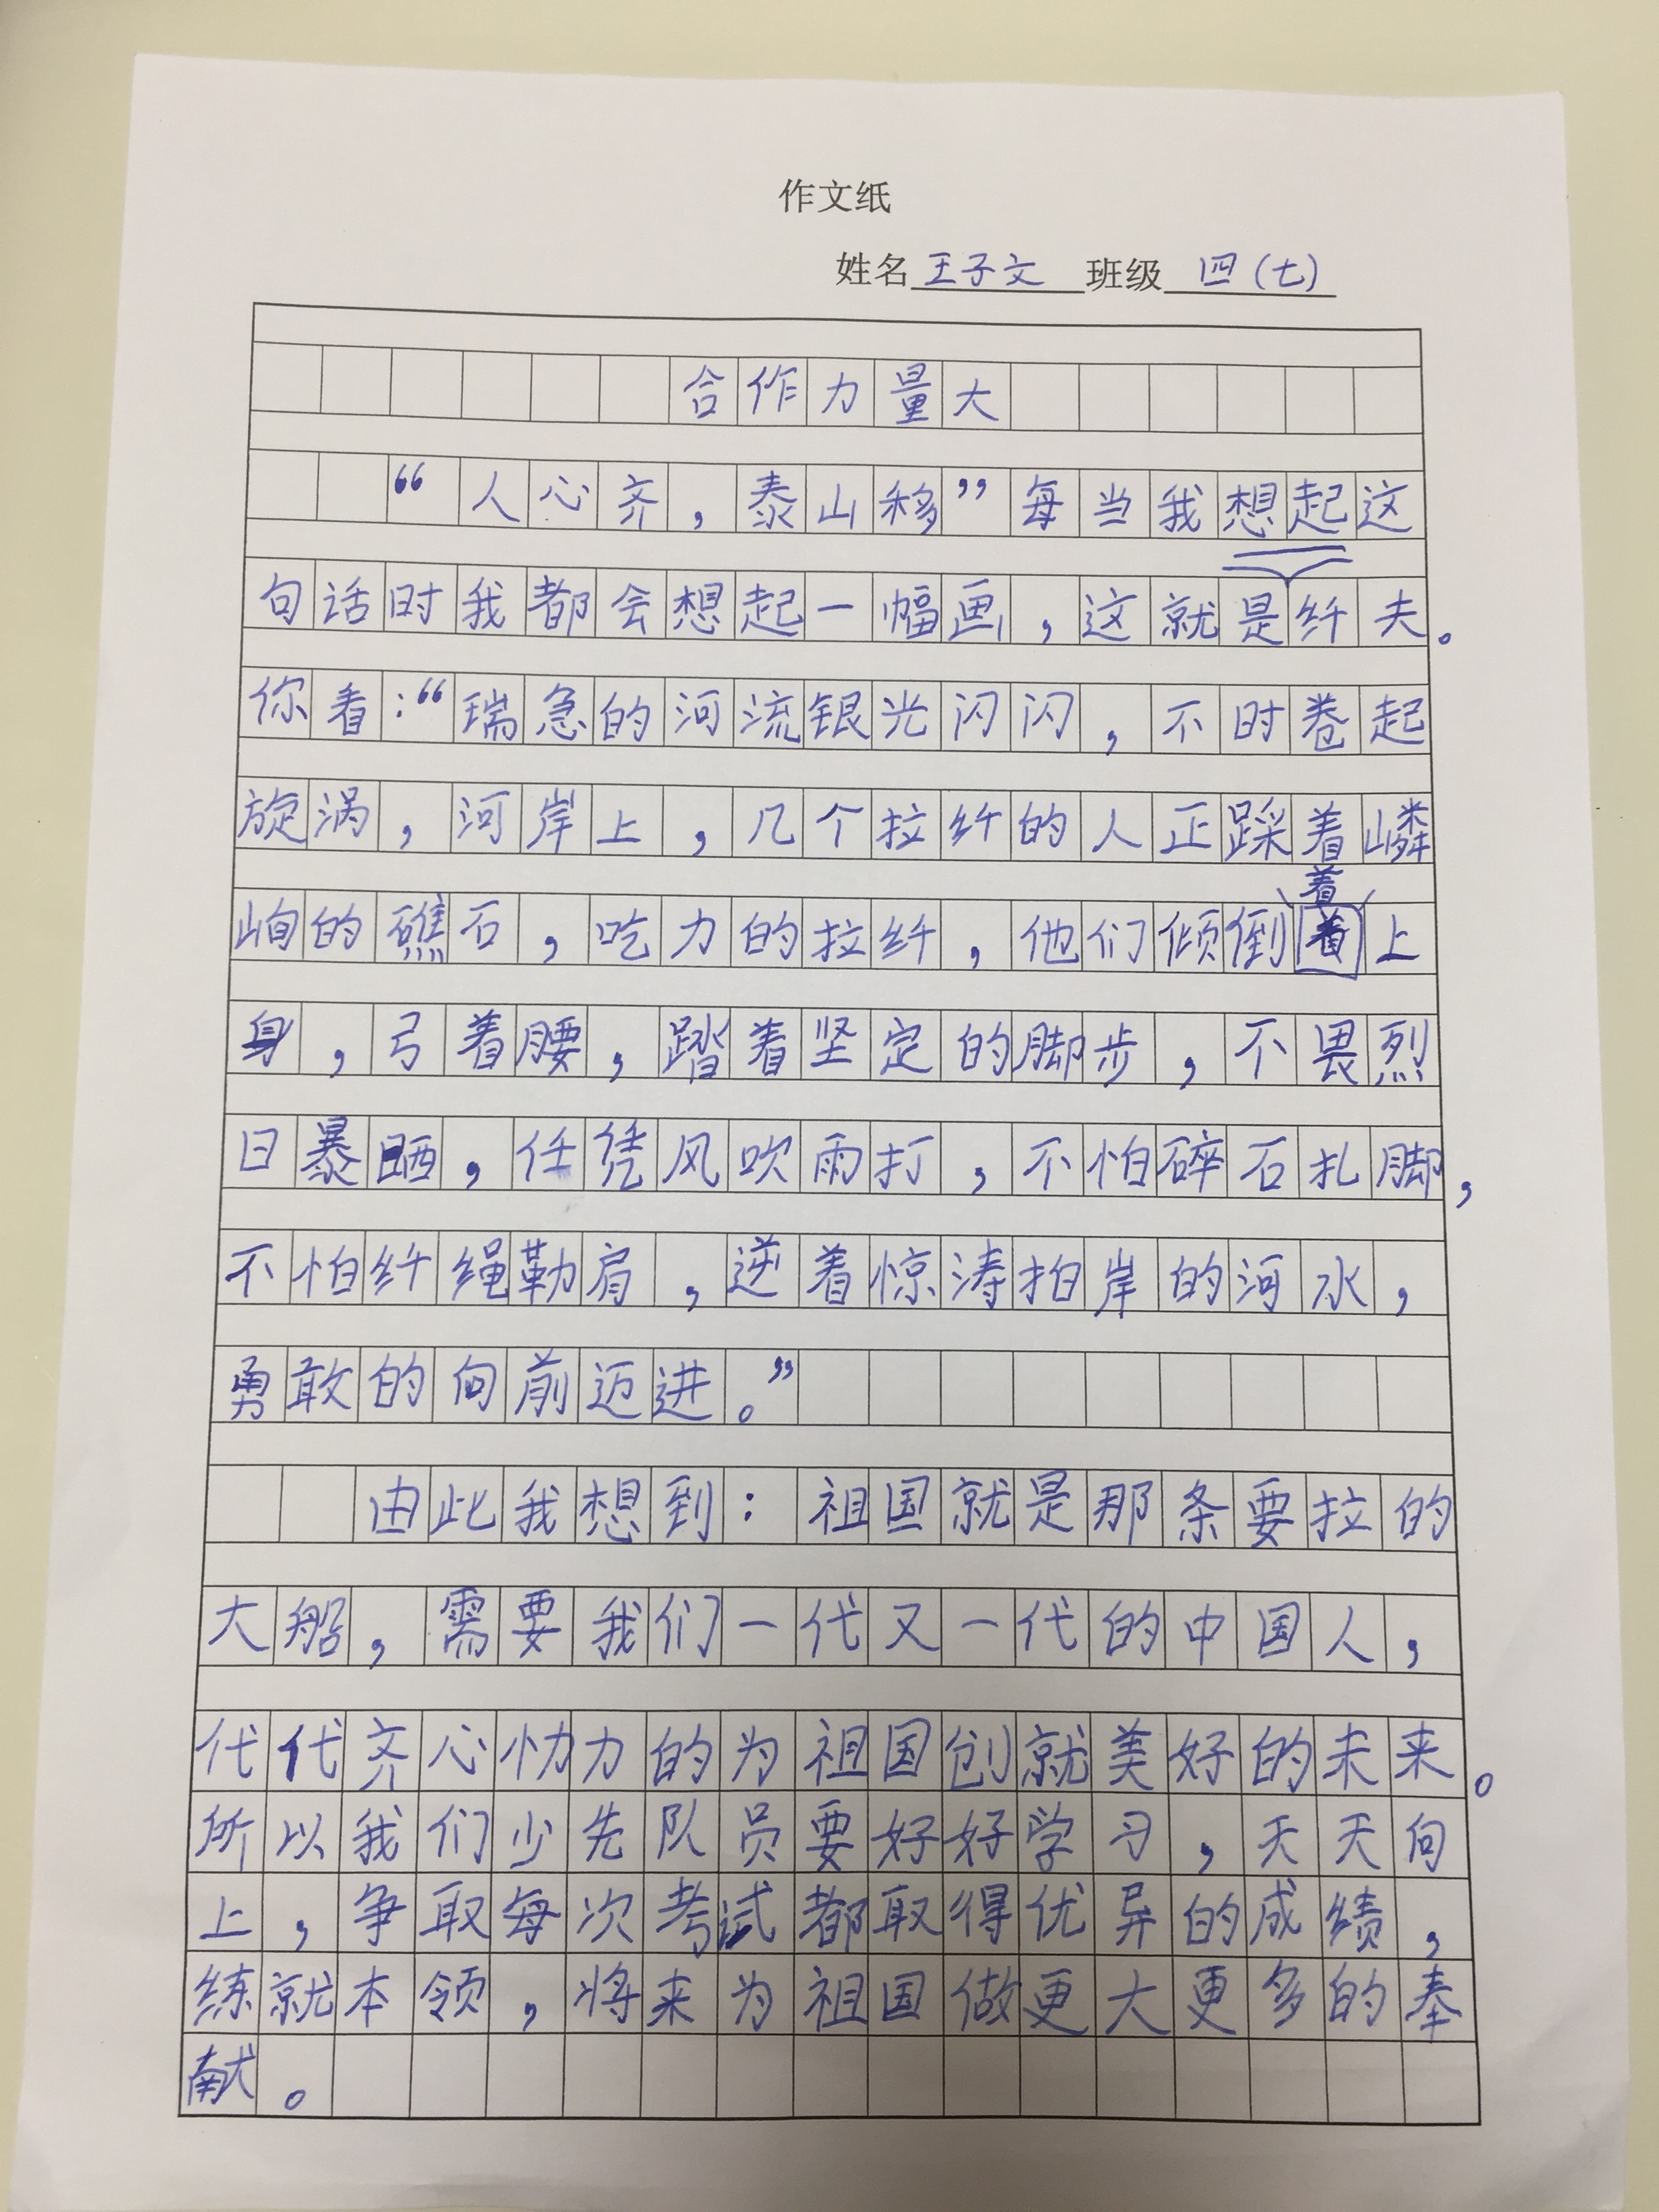 作文纸
姓名王子文 班级 四(七)
合作力量大
“人心齐,泰山移”每当我想起这
句话时我都会想起一幅画,这就是纤夫。
你看:“瑞急的河流银光闪闪,不时卷起
旋涡,河岸上,几个拉纤的人正踩着嶙
峋的礁石,吃力的拉纤,他们倾倒着上
身,弓着腰,踏着坚定的脚步,不畏烈
日暴晒,任凭风吹雨打,不怕碎石扎脚,
不怕纤绳勒肩,逆着惊涛拍岸的河水,
勇敢的向前迈进。”
由此我想到:祖国就是那条要拉的
大船,需要我们一代又一代的中国人,
代代齐心协力的为祖国创就美好的未来。
所以我们少先队员要好好学习,天天向
上,争取每次考试都取得优异的成绩,
练就本领,将来为祖国做更大更多的奉
献。